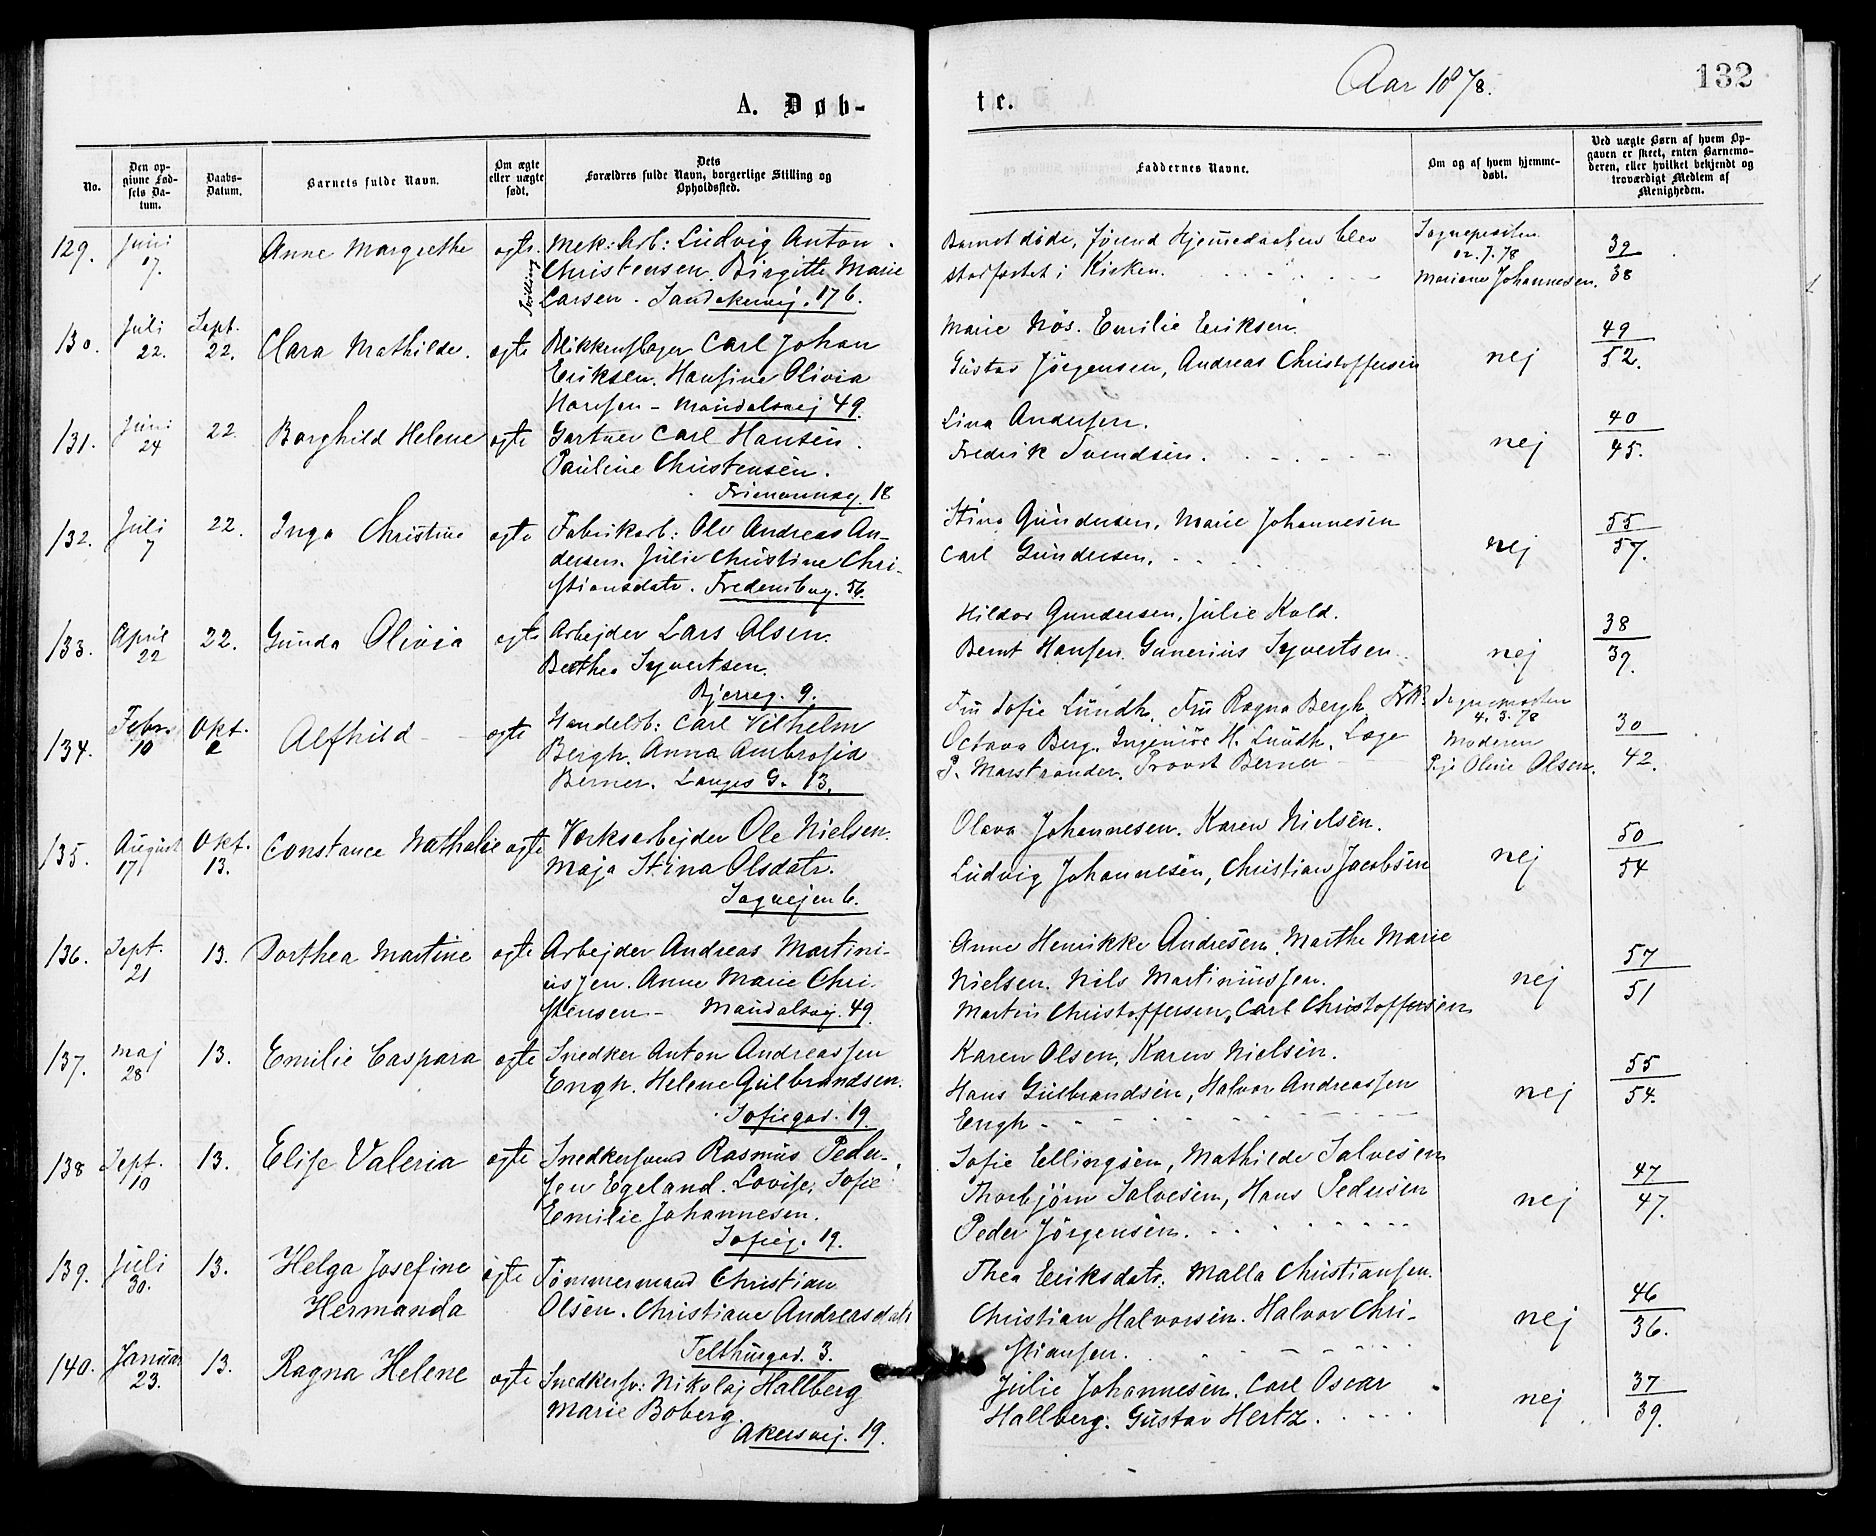 Aar 1878.
132
A. Døb-
te.
No.
Den op-
givne Fød-
sels Da-
tum.
Daabs-
Datum.
Barnets fulde Navn.
Om ægte
eller uægte
født.
Dets
Forældres fulde Navn, borgerlige Stilling og
Opholdssted.
Faddernes Navne.
Om og af hvem hjemme-
døbt.
Ved uægte Børn af hvem Op-
gaven er skeet, enten Barnemo-
deren, eller hvilket bekjendt og
troværdigt Medlem af
Menigheden.
129. Juni 17. Anne Margrethe ægte Tvilling
Mek: Arb: Ludvig Anton
Christensen. Birgitte Marie
Larsen. Sandakervej. 176.
Barnet døde, førend Hjemmedaaben blev
stadfæstet i Kirken.
Sognepresten
12.7.78
Mariane Johannesen.
39
38
130. Juli 22. Sept. 22. Clara Mathilde. ægte
Blikkenslager Carl Johan
Eriksen. Hansine Olivia
Hansen - Maridalsvej 49.
Marie Nøs. Emilie Eriksen.
Gustav Jörgensen, Andreas Christoffersen
nej
49
52.
131. Juni 24 22 Borghild Helene ægte
Gartner Carl Hansen.
Pauline Christensen.
Frimannsg. 18
Lina Andersen.
Fredrik Svendsen.
nej
40
45.
132. Juli 7 22. Inga Christine ægte
Fabrikarb: Ole Andreas An-
dersen. Julie Christine Chri-
stiansdatr. Fredensbvg. 56.
Stina Gundersen, Marie Johannesen
Carl Gundersen.
nej
55
57.
133. April 22 22. Gunda Olivia ægte
Arbejder Lars Olsen.
Berthea Syvertsen.
Bjerreg. 9.
Hildor Gundersen, Julie Kold.
Bernt Hansen. Gunerius Syvertsen
nej
38
39.
134. Febr. 10 Okt. 2 Alfhild ægte
Handelsb: Carl Vilhelm
Bergh. Anna Ambrosia
Berner. Langes G. 13.
Fru Sofie Lundh, Fru Ragna Bergh Frk.
Octava Berg. Ingeniör H. Lundh. Læge
P. Marstrander. Provst Berner
Sognepresten
4.3.78
Moderen
Pige Oline Olsen.
30
42.
135. August 17 Okt. 13. Constance Nathalie ægte
Værksarbejder Ole Nielsen.
Maja Stina Olsdatr.
Sagvejen 6.
Olava Johannesen. Karen Nielsen.
Ludvig Johannesen, Christian Jacobsen
nej
50
54
136. Sept. 21 13. Dorthea Martine ægte
Arbejder Andreas Martini-
ussen. Anne Marie Chri-
stensen - Maridalsvej. 49.
Anne Henrikke Andresen. Marthe Marie
Nielsen. Nils Martiniussen.
Martin Christoffersen, Carl Christoffersen
nej
57
51
137. Maj 28 13. Emilie Caspara ægte
Snedker Anton Andreassen
Engh. Helene Gulbrandsen.
Sofiegad. 19.
Karen Olsen, Karen Nielsen.
Hans Gulbrandsen, Halvor Andreassen
Engh
nej
55
54.
138 Sept. 10 13. Elise Valeria ægte
Snedkersvend Rasmus Peder-
sen Egeland. Lovise, Sofie
Emilie Johannesen.
Sofieg. 19.
Sofie Ellingsen, Mathilde Salvesen
Thorbjörn Salvesen, Hans Pedersen
Peder Jörgensen.
nej
47
47.
139. Juli 30. 13. Helga Josefine
Hermanda ægte
Tömmermand Christian
Olsen. Christiane Andreasdatr
Telthusgad. 3.
Thea Eriksdatr. Malla Christiansen.
Christian Halvorsen. Halvor Chri-
stiansen.
nej
46
36.
140. Januar 23. 13. Ragna Helene ægte
Snedkersv: Nikolaj Hallberg
Marie Boberg.
Akersvej. 19.
Julie Johannesen. Carl Oscar
Hallberg. Gustav Hertz.
nej
37
39.